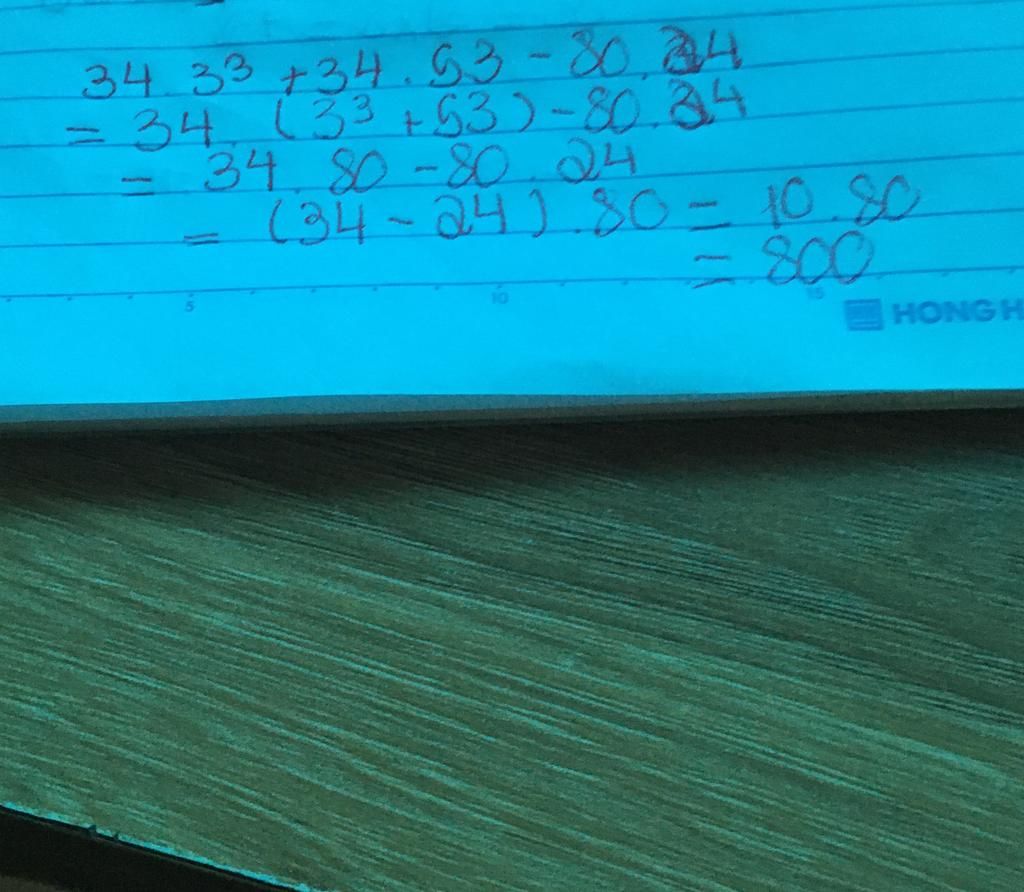 34.3³ + 34.53 - 80.24
= 34.(3³ + 53) - 80.24
= 34.80 - 80.24
= (34 - 24).80 = 10.80
= 800
5 10 15
HONG H